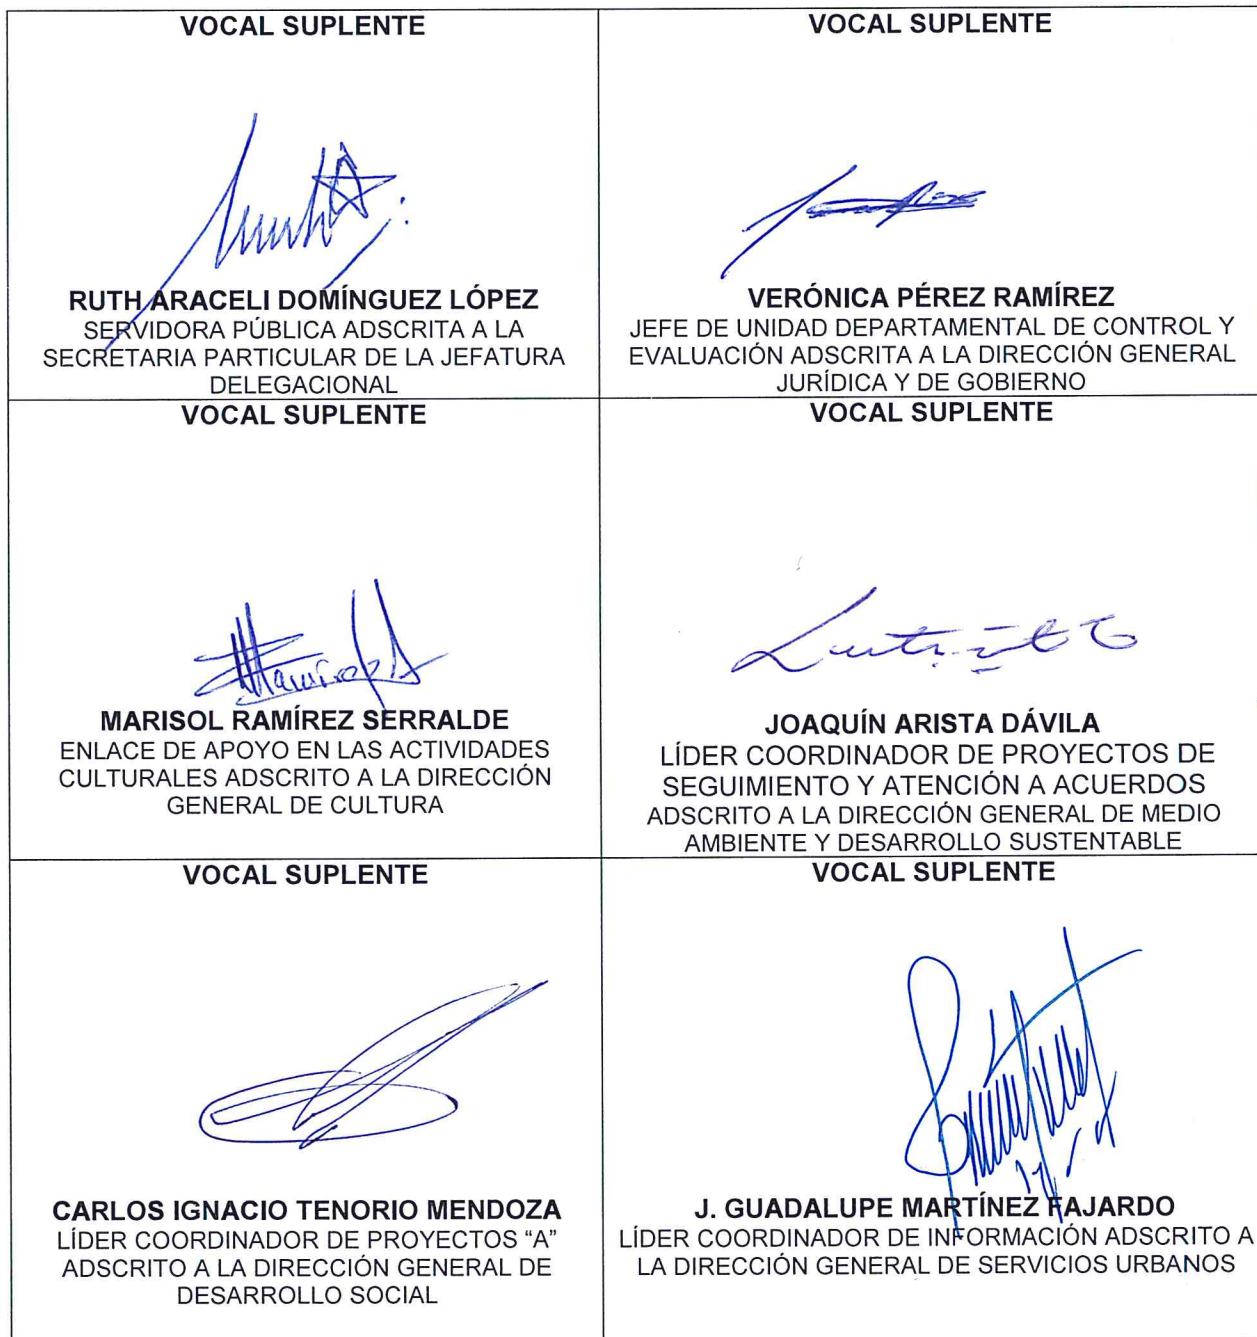 VOCAL SUPLENTE
RUTH ARACELI DOMÍNGUEZ LÓPEZ
SERVIDORA PÚBLICA ADSCRITA A LA
SECRETARIA PARTICULAR DE LA JEFATURA
DELEGACIONAL
VOCAL SUPLENTE
VERÓNICA PÉREZ RAMÍREZ
JEFE DE UNIDAD DEPARTAMENTAL DE CONTROL Y
EVALUACIÓN ADSCRITA A LA DIRECCIÓN GENERAL
JURÍDICA Y DE GOBIERNO
VOCAL SUPLENTE
MARISOL RAMÍREZ SERRALDE
ENLACE DE APOYO EN LAS ACTIVIDADES
CULTURALES ADSCRITO A LA DIRECCIÓN
GENERAL DE CULTURA
VOCAL SUPLENTE
JOAQUÍN ARISTA DÁVILA
LÍDER COORDINADOR DE PROYECTOS DE
SEGUIMIENTO Y ATENCIÓN A ACUERDOS
ADSCRITO A LA DIRECCIÓN GENERAL DE MEDIO
AMBIENTE Y DESARROLLO SUSTENTABLE
VOCAL SUPLENTE
CARLOS IGNACIO TENORIO MENDOZA
LÍDER COORDINADOR DE PROYECTOS “A”
ADSCRITO A LA DIRECCIÓN GENERAL DE
DESARROLLO SOCIAL
VOCAL SUPLENTE
J. GUADALUPE MARTÍNEZ FAJARDO
LÍDER COORDINADOR DE INFORMACIÓN ADSCRITO A
LA DIRECCIÓN GENERAL DE SERVICIOS URBANOS